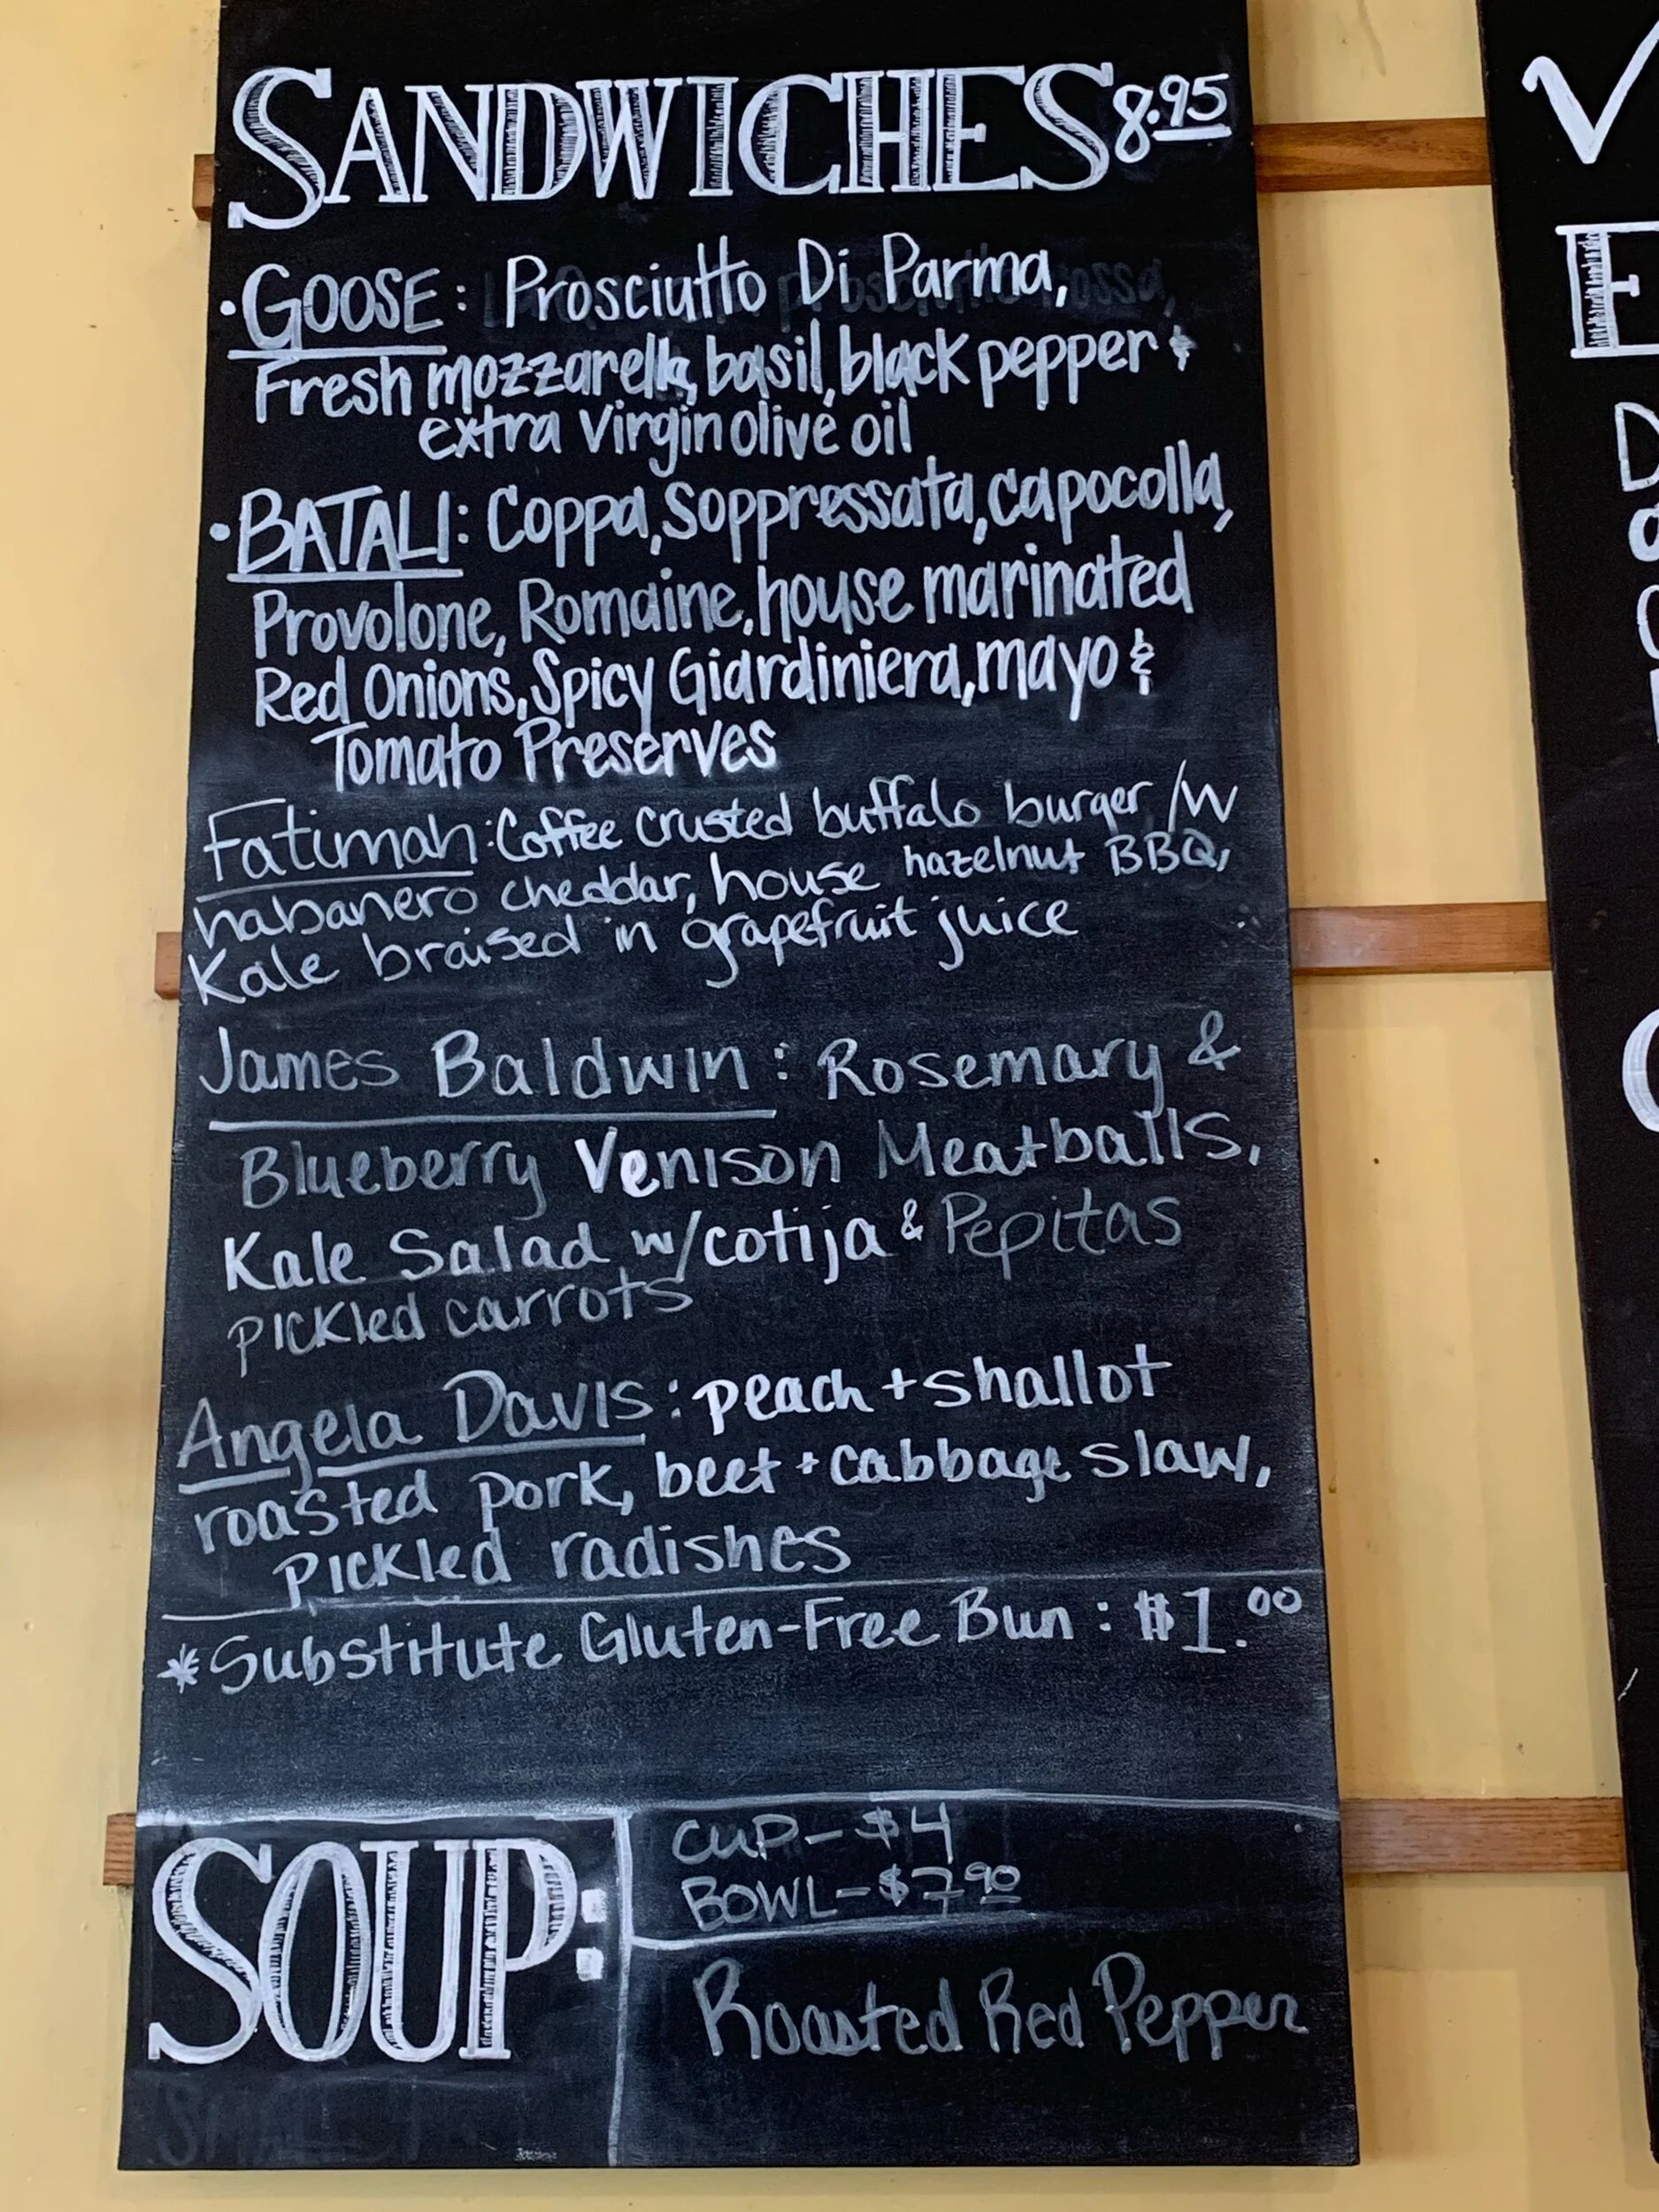 SANDWICHES 8.95
• GOOSE: Prosciutto Di Parma,
Fresh mozzarella, basil, black pepper &
extra virgin olive oil
• BATALI: Coppa, Soppressata, capocolla,
Provolone, Romaine, house marinated
Red Onions, Spicy Giardiniera, mayo &
Tomato Preserves
Fatimah: Coffee crusted buffalo burger /w
habanero cheddar, house hazelnut BBQ,
Kale braised in grapefruit juice
James Baldwin: Rosemary &
Blueberry Venison Meatballs,
Kale Salad w/cotija & Pepitas
pickled carrots
Angela Davis: peach + shallot
roasted pork, beet + cabbage slaw,
Pickled radishes
*Substitute Gluten-Free Bun: $1.00
SOUP:
CUP - $4
BOWL - $7.90
Roasted Red Pepper